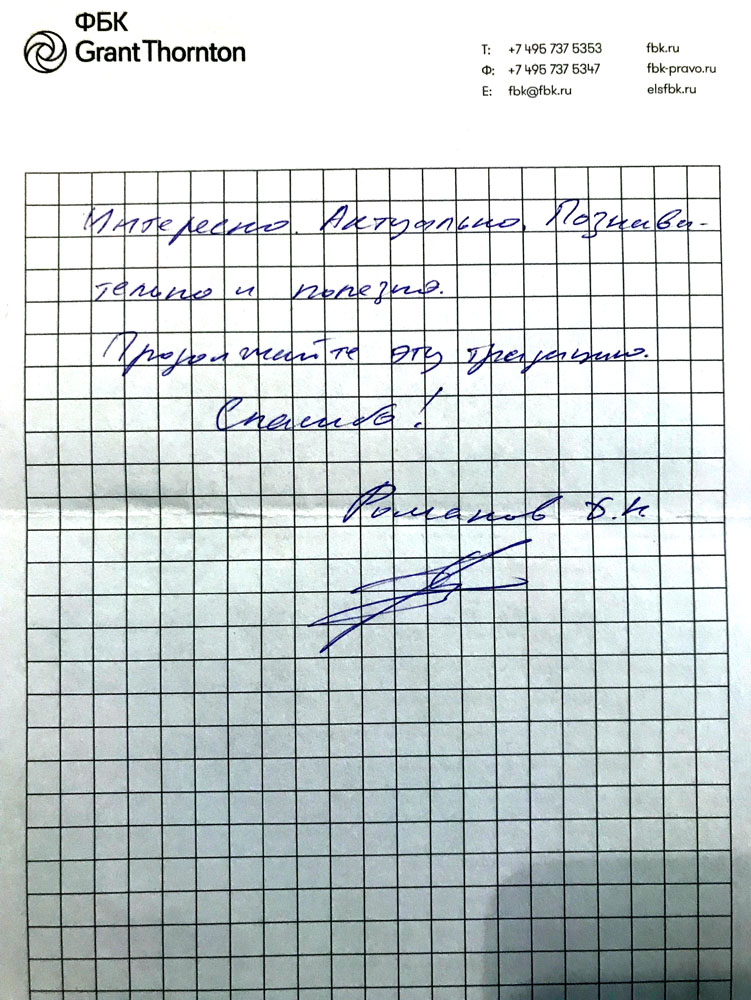 ФБК
Grant Thornton
Т: +7 495 737 5353 fbk.ru
Ф: +7 495 737 5347 fbk-pravo.ru
E: fbk@fbk.ru elsfbk.ru
Интересно. Актуально. Познава-
тельно и полезно.
Продолжайте эту традицию.
Спасибо!
Романов Б.Н